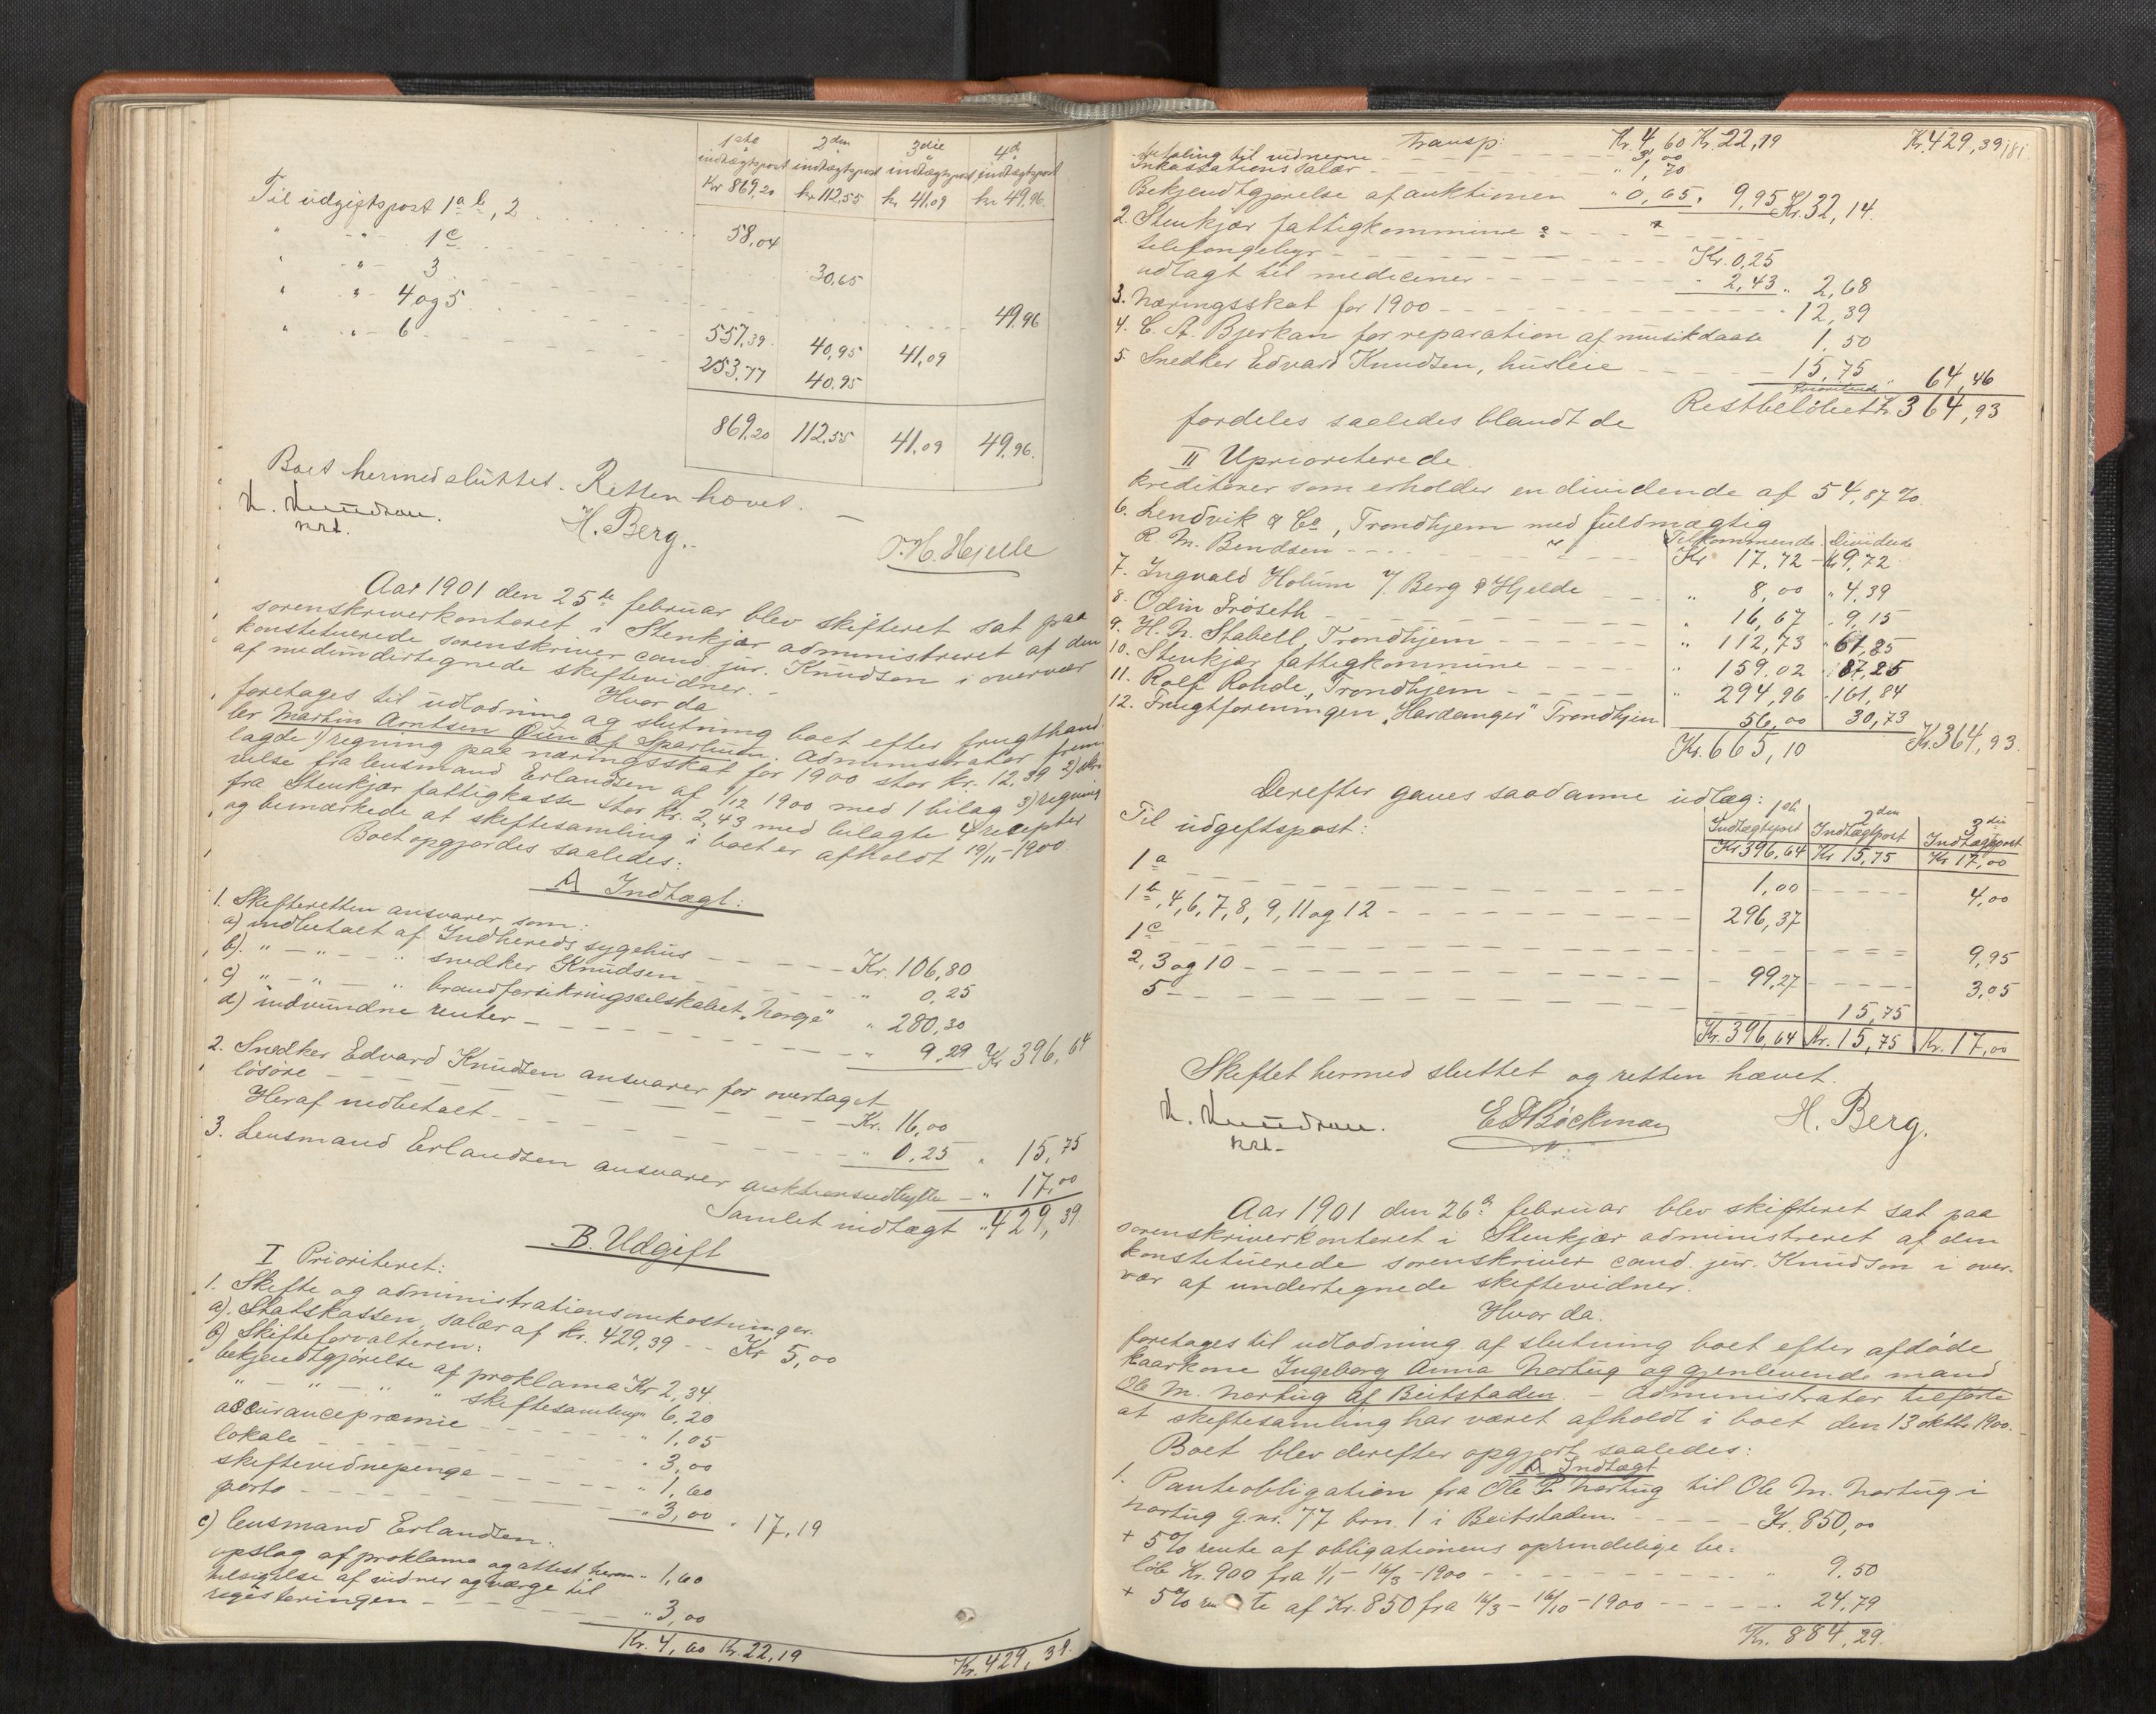 1ste 2den 3die 4de
indtægtspost indtægtspost indtægtspost indtægtspost
Kr 869,20 kr 112,55 kr 41,09 kr 49,96
Til udgiftspost 1 a b, 2 58,04
" - " - 1 c 30,65
" - " - 3 49,96
" - " - 4 og 5 557,39 40,95 41,09
" - " - 6 253,77 40,95
869,20 112,55 41,09 49,96.
Boet hermed sluttet. Retten hævet. -
K. Knudson. H. Berg. O. H. Hjelle
kst.
Aar 1901 den 25de februar blev skifteret sat paa
sorenskriverkontoret i Stenkjær administreret af den
konstituerede sorenskriver cand. jur. Knudson i overvær
af medundertegnede skiftevidner. -
Hvor da
foretages til udlodning og slutning boet efter frugthand-
ler Martin Arntsen Øien af Sparbuen. Administrator frem-
lagde 1) regning paa næringsskat for 1900 stor kr. 12,39 2) skri-
velse fra lensmand Erlandsen af 1/12 1900 med 1 bilag 3) regning
fra Stenkjær fattigkasse stor kr. 2,43 med bilagte 4 recepter
og bemærkede at skiftesamling i boet er afholdt 19/11 - 1900.
Boet opgjordes saaledes:
A Indtægt:
1. Skifteretten ansvarer som:
a) indbetalt af Indhereds sygehus - - - Kr. 106,80
b). " - " - " snedker Knudsen - - - " 0,25
c) " - " - " brandforsikringsselskabet "Norge" " 280,30
d) indvundne renter - - - " 9,29 Kr 396,64
2. Snedker Edvard Knudsen ansvarer for overtaget
løsøre - - - Kr. 16,00
Heraf nedbetalt - - - " 0,25 " 15,75
3. Lensmand Erlandsen ansvarer auktionsudbytte - " 17,00
Samlet indtægt " 429,39
B. Udgift
I Prioriteret:
1. Skifte og administrationsomkostninger.
a). Statskassen, salær af kr. 429,39 - - Kr 5,00
b) Skifteforvalteren:
bekjendtgjørelse af proklama Kr 2,34
" - " - " " skiftesamling " 6,20
assurancepræmie - - - " 1,05
lokale - - - " 3,00
skiftevidnepenge - - - " 1,60
porto - - - " 3,00 " 17,19
c) lensmand Erlandsen:
opslag af proklama og attest herom " 1,60
tilsigelse af vidner og værge til
registeringen - - - " 3,00
Kr. 4,60 Kr. 22,19 Kr. 429,39.
Transp: Kr. 4,60 Kr. 22,19 Kr. 429,39 181
betaling til vidnerne - - - " 3,00
Inkassationssalær - - - " 1,70
Bekjendtgjørelse af auktionen " 0,65 " 9,95 Kr. 32,14.
2. Stenkjær fattigkommune:
telefongebyr - - - Kr. 0,25
udlagt til mediciner - - - " 2,43 " 2,68
3. Næringsskat for 1900 - - - " 12,39
4. C. A. Bjerkan for reparation af musikdaase 1,50
5. Snedker Edvard Knudsen, husleie - - - 15,75 " 64,46
Restbeløbet Kr. 364,93
fordeles saaledes blandt de
II Uprioriterede
kreditorer som erholder en dividende af 54,87 %.
6. Lendvik & Co, Trondhjem med fuldmægtig Tilkommende Dividende
R. M. Bendsen - - - Kr 17,72 - Kr 9,72
7. Ingvald Holum v/ Berg & Hjelde - - - " 8,00 " 4,39
8. Odin Frøseth - - - " 16,67 " 9,15
9. H. N. Stabell, Trondhjem - - - " 112,73 " 61,85
10. Stenkjær fattigkommune - - - " 159,02 " 87,25
11. Rolf Rohde, Trondhjem - - - " 294,96 " 161,84
12. Frugtforeningen "Hardanger" Trondhjem 56,00 30,73
Kr. 665,10 Kr. 364,93.
Derefter gaves saadanne udlæg:
1ste 2den 3die
Til udgiftspost: Indtægtspost Indtægtpost Indtægtspost
Kr 396,64 Kr 15,75 Kr 17,00
1 a - - - 1,00 - - - 4,00
1 b, 4, 6, 7, 8, 9, 11 og 12 - - - 296,37
1 c - - - 9,95
2, 3 og 10 - - - 99,27 - - - 3,05
5 - - - 15,75
Kr. 396,64 Kr. 15,75 Kr. 17,00
Skiftet hermed sluttet og retten hævet.
K. Knudson. E Bøckman H. Berg.
kst.
Aar 1901 den 26de februar blev skifteret sat paa
sorenskriverkontoret i Stenkjær administreret af den
konstituerede sorenskriver cand. jur. Knudson i over-
vær af undertegnede skiftevidner.
Hvor da.
foretages til udlodning af slutning boet efter afdøde
kaarkone Ingeborg Anna Nortug og gjenlevende mand
Ole M. Nortug af Beitstaden. - Administrator tilførte
at skiftesamling har været afholdt i boet den 13 oktbr 1900.
Boet blev derefter opgjort saaledes:
A Indtægt
1. Panteobligation fra Ole P. Nortug til Ole M. Nortug i
Nortug g.nr. 77 brn. 1 i Beitstaden. - - - Kr. 850,00
+ 5 % rente af obligationens oprindelige be-
løb Kr. 900 fra 1/1 - 16/3 - 1900 - - - " 9.50
+ 5 % rente af Kr. 850 fra 16/3 - 16/10 - 1900 - - - " 24,79
Kr. 884,29.